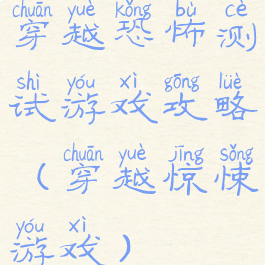 chuān yuè kǒng bù cè
穿越恐怖测
shì yóu xì gōng lüè
试游戏攻略
chuān yuè jīng sǒng
（穿越惊悚
yóu xì
游戏）